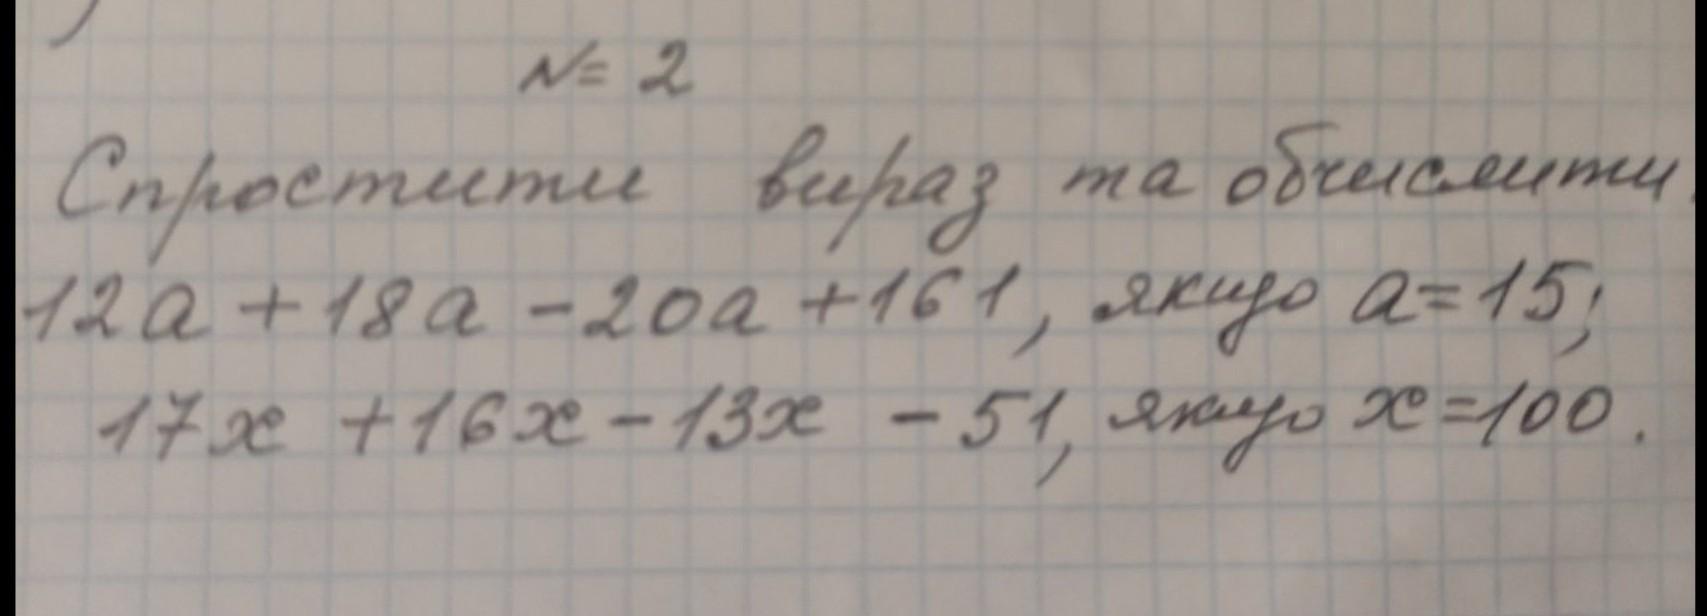 № 2
Спростити вираз та обчислити.
12a + 18a - 20a + 161, якщо a = 15;
17x + 16x - 13x - 51, якщо x = 100.